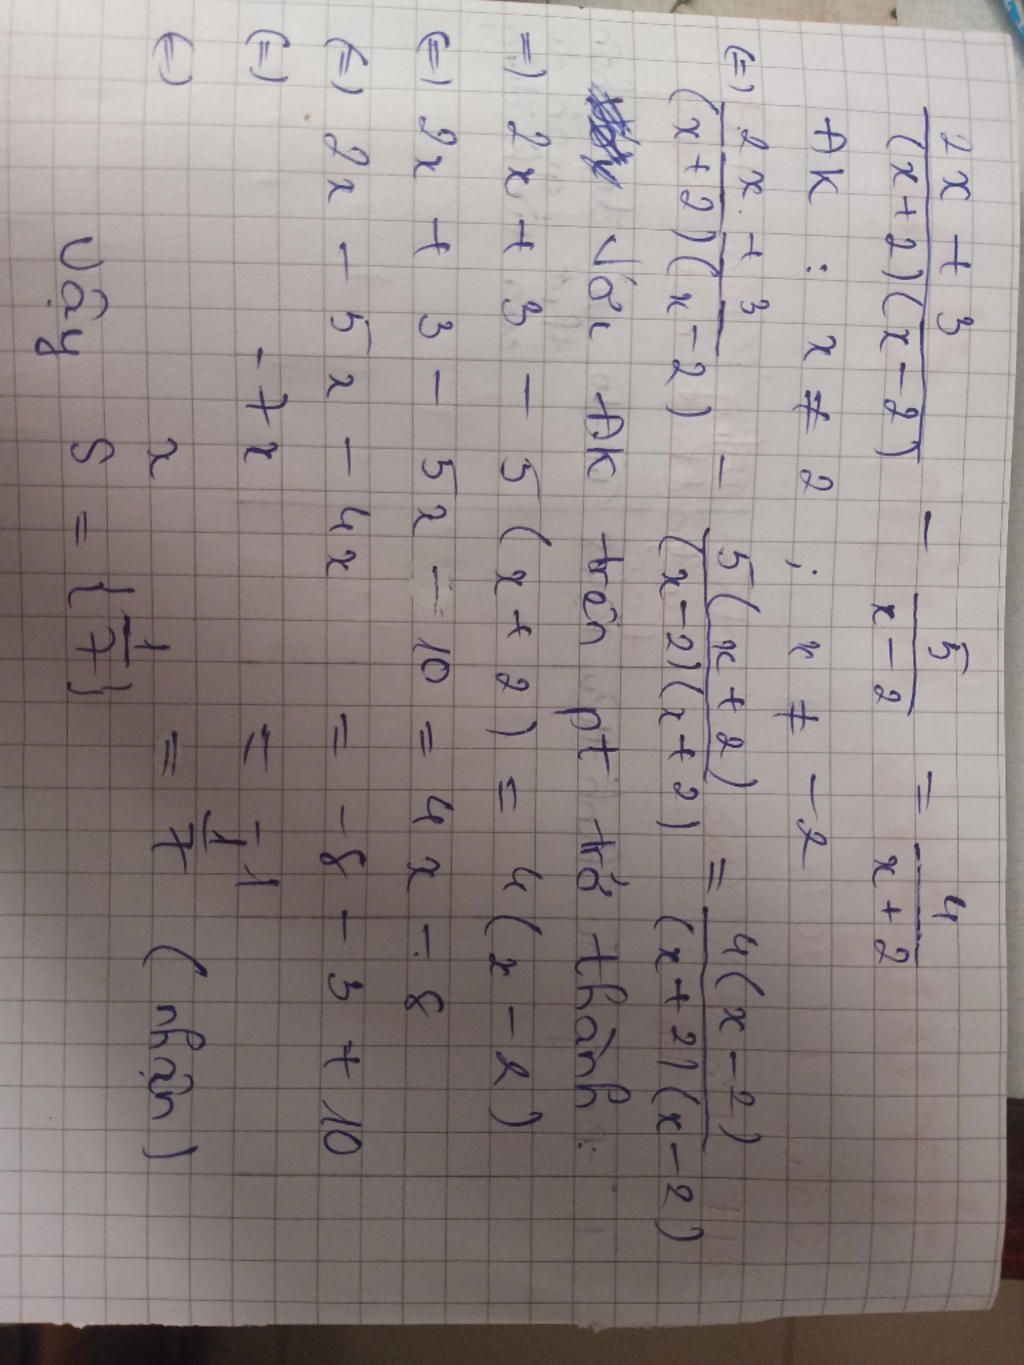 2x + 3 / (x+2)(x-2) - 5 / x-2 = 4 / x+2
ĐK : x ≠ 2 ; x ≠ -2
(=) 2x + 3 / (x+2)(x-2) - 5(x+2) / (x-2)(x+2) = 4(x-2) / (x+2)(x-2)
Với ĐK trên pt trở thành:
=) 2x + 3 - 5(x+2) = 4(x-2)
(=) 2x + 3 - 5x - 10 = 4x - 8
(=) 2x - 5x - 4x = -8 - 3 + 10
(=) -7x = -1
(=) x = 1/7 (nhận)
Vậy S = {1/7}